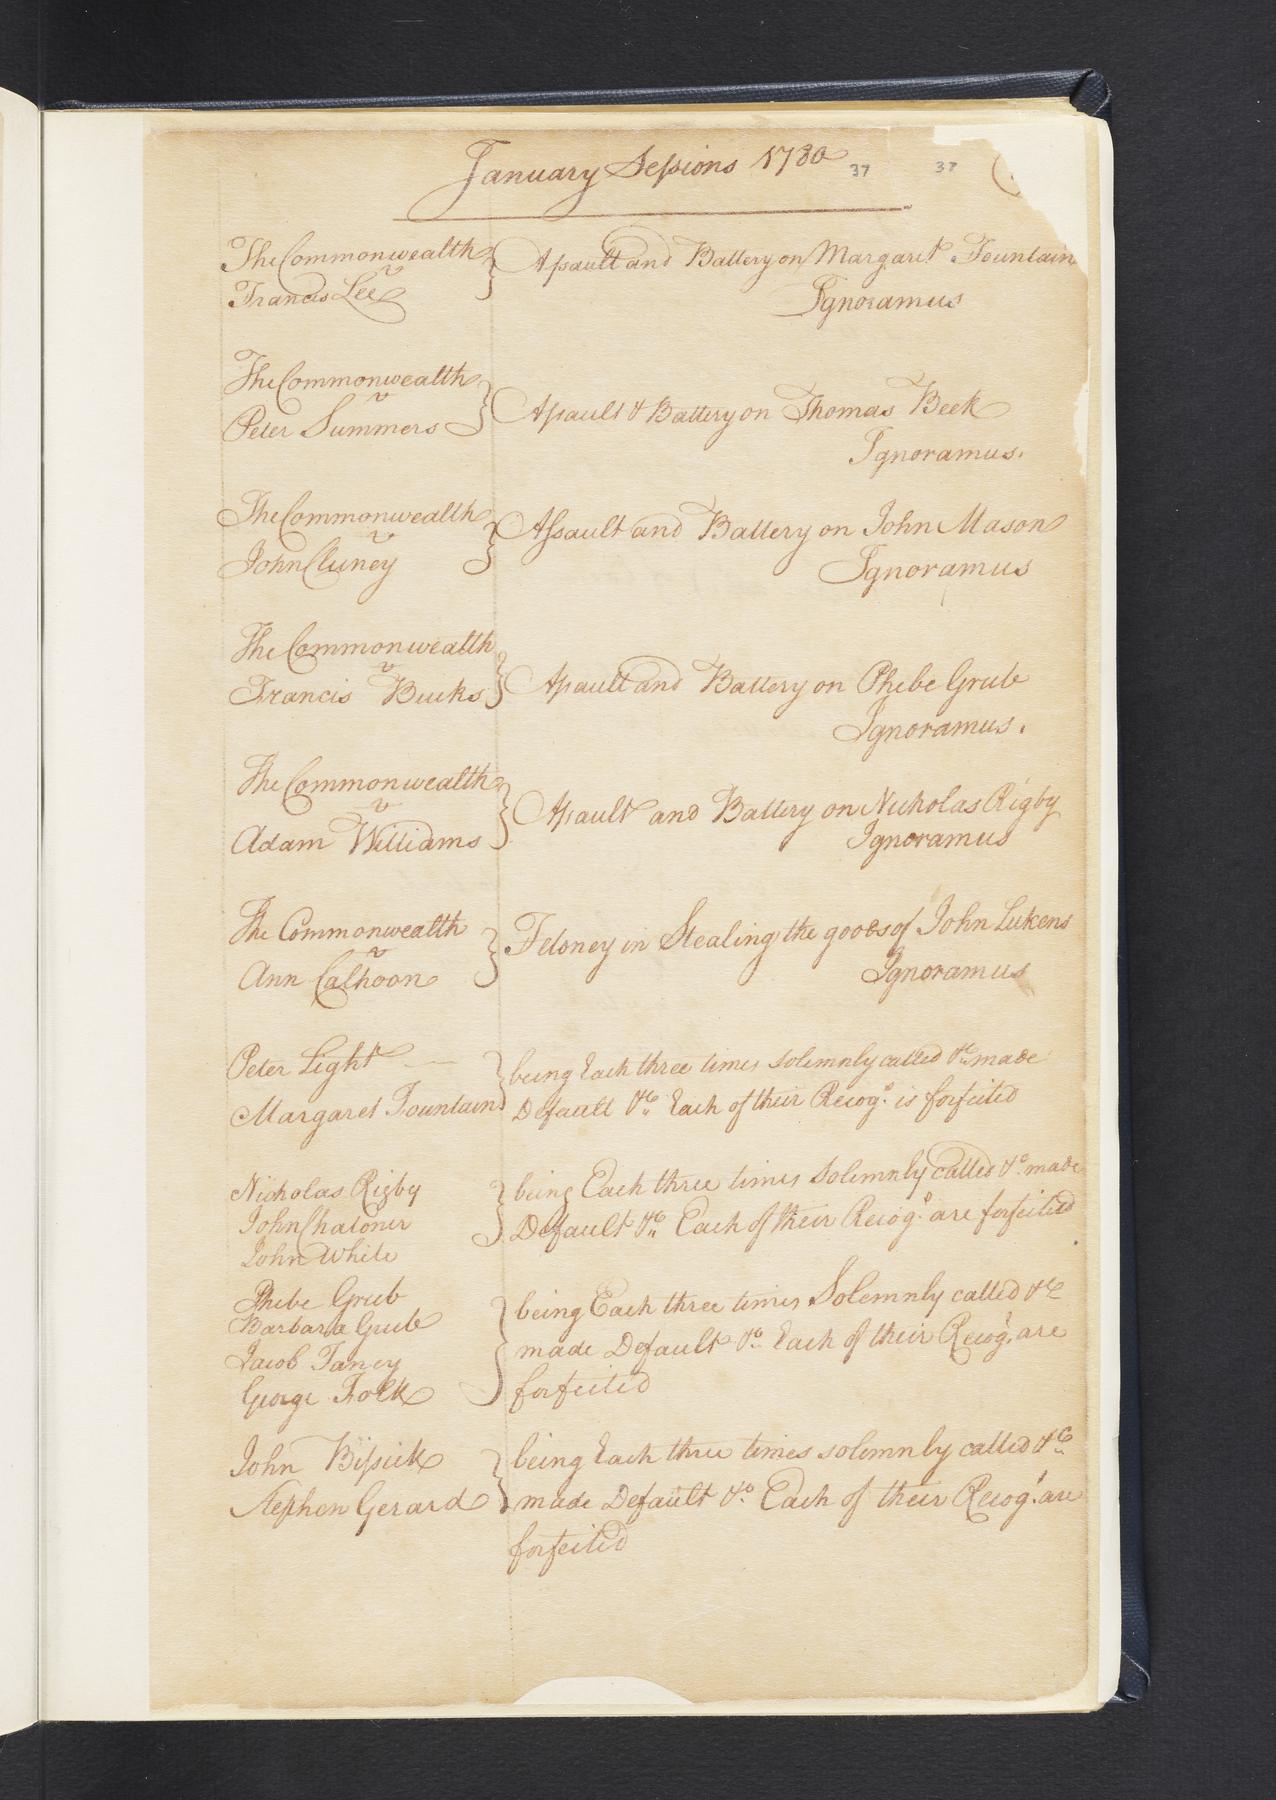 January Sessions 1780 37 37
The Commonwealth
v
Francis Lee
Assault and Battery on Margaret Fountain
Ignoramus
The Commonwealth
v
Peter Summers
Assault & Battery on Thomas Beek
Ignoramus.
The Commonwealth
v
John Cluney
Assault and Battery on John Mason
Ignoramus
The Commonwealth
v
Francis Bucks
Assault and Battery on Phebe Grub
Ignoramus.
The Commonwealth
v
Adam Williams
Assault and Battery on Nicholas Rigby
Ignoramus
The Commonwealth
v
Ann Calhoon
Feloney in Stealing the goods of John Lukens
Ignoramus
Peter Light
Margaret Fountain
being Each three times solemnly called &c made
Default &c Each of their Recog.s is forfeited
Nicholas Rigby
John Chaloner
John White
being Each three times Solemnly called &c made
Default &c Each of their Recog.s are forfeited
Phebe Grub
Barbara Grub
Jacob Taney
George Folk
being Each three times Solemnly called &c
made Default &c Each of their Recog.s are
forfeited
John Bissick
Stephen Gerard
being Each three times solemnly called &c
made Default &c Each of their Recog.s are
forfeited